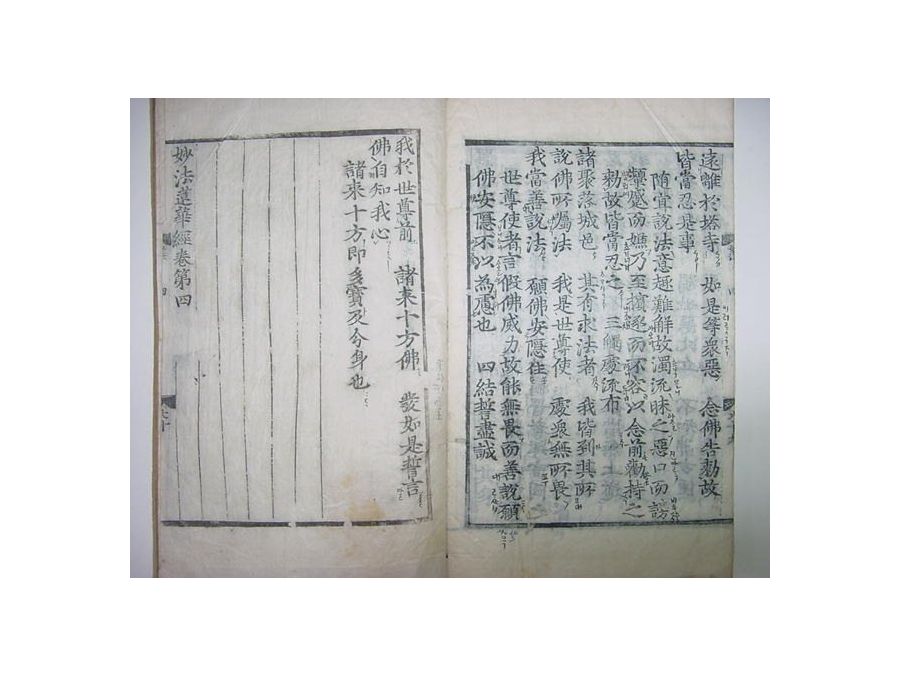 遠離於塔寺 如是等衆惡 念佛告勅故
皆當忍是事
隨宜說法意趣難解故濁流昧之惡口而謗
顰蹙而乃至擯逐而不容以念前勸持之
勅故皆當忍之 三觸處流布
諸聚落城邑 其有求法者 我皆到其所
說佛所囑法 我是世尊使 處衆無所畏
我當善說法 願佛安隱住
世尊使者言假佛威力故能無畏而善說願
佛安隱不以為慮也 四結誓盡誠
我於世尊前 諸来十方佛 發如是誓言
佛自知我心
諸来十方即多寶及分身也
妙法蓮華經卷第四